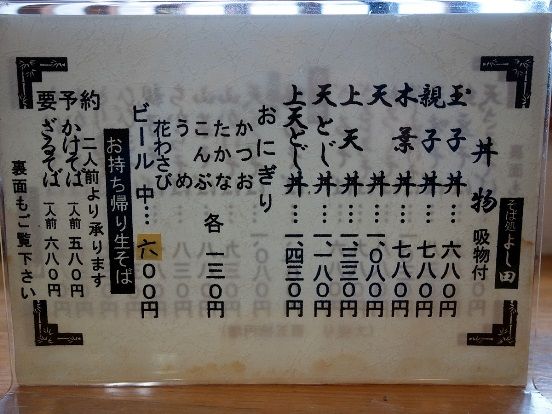 そば処 よし田
丼物 吸物付
玉子丼…六八〇円
親子丼…七八〇円
木葉丼…七八〇円
天丼…一、〇八〇円
上天丼…一、三三〇円
天とじ丼…一、一八〇円
上天どじ丼…一、四三〇円
おにぎり
かつお
たかな
こんぶ
うめ
各 一三〇円
花わさび
ビール 中…六〇〇円
お持ち帰り生そば
二人前より承ります
要予約
かけそば 一人前 五八〇円
ざるそば 一人前 六八〇円
裏面もご覧下さい